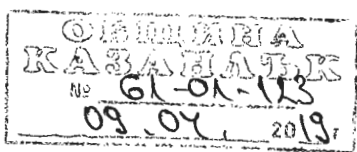 ОБЩИНА
КАЗАНЛЪК
№ 61-01-123
09.04. 2019г